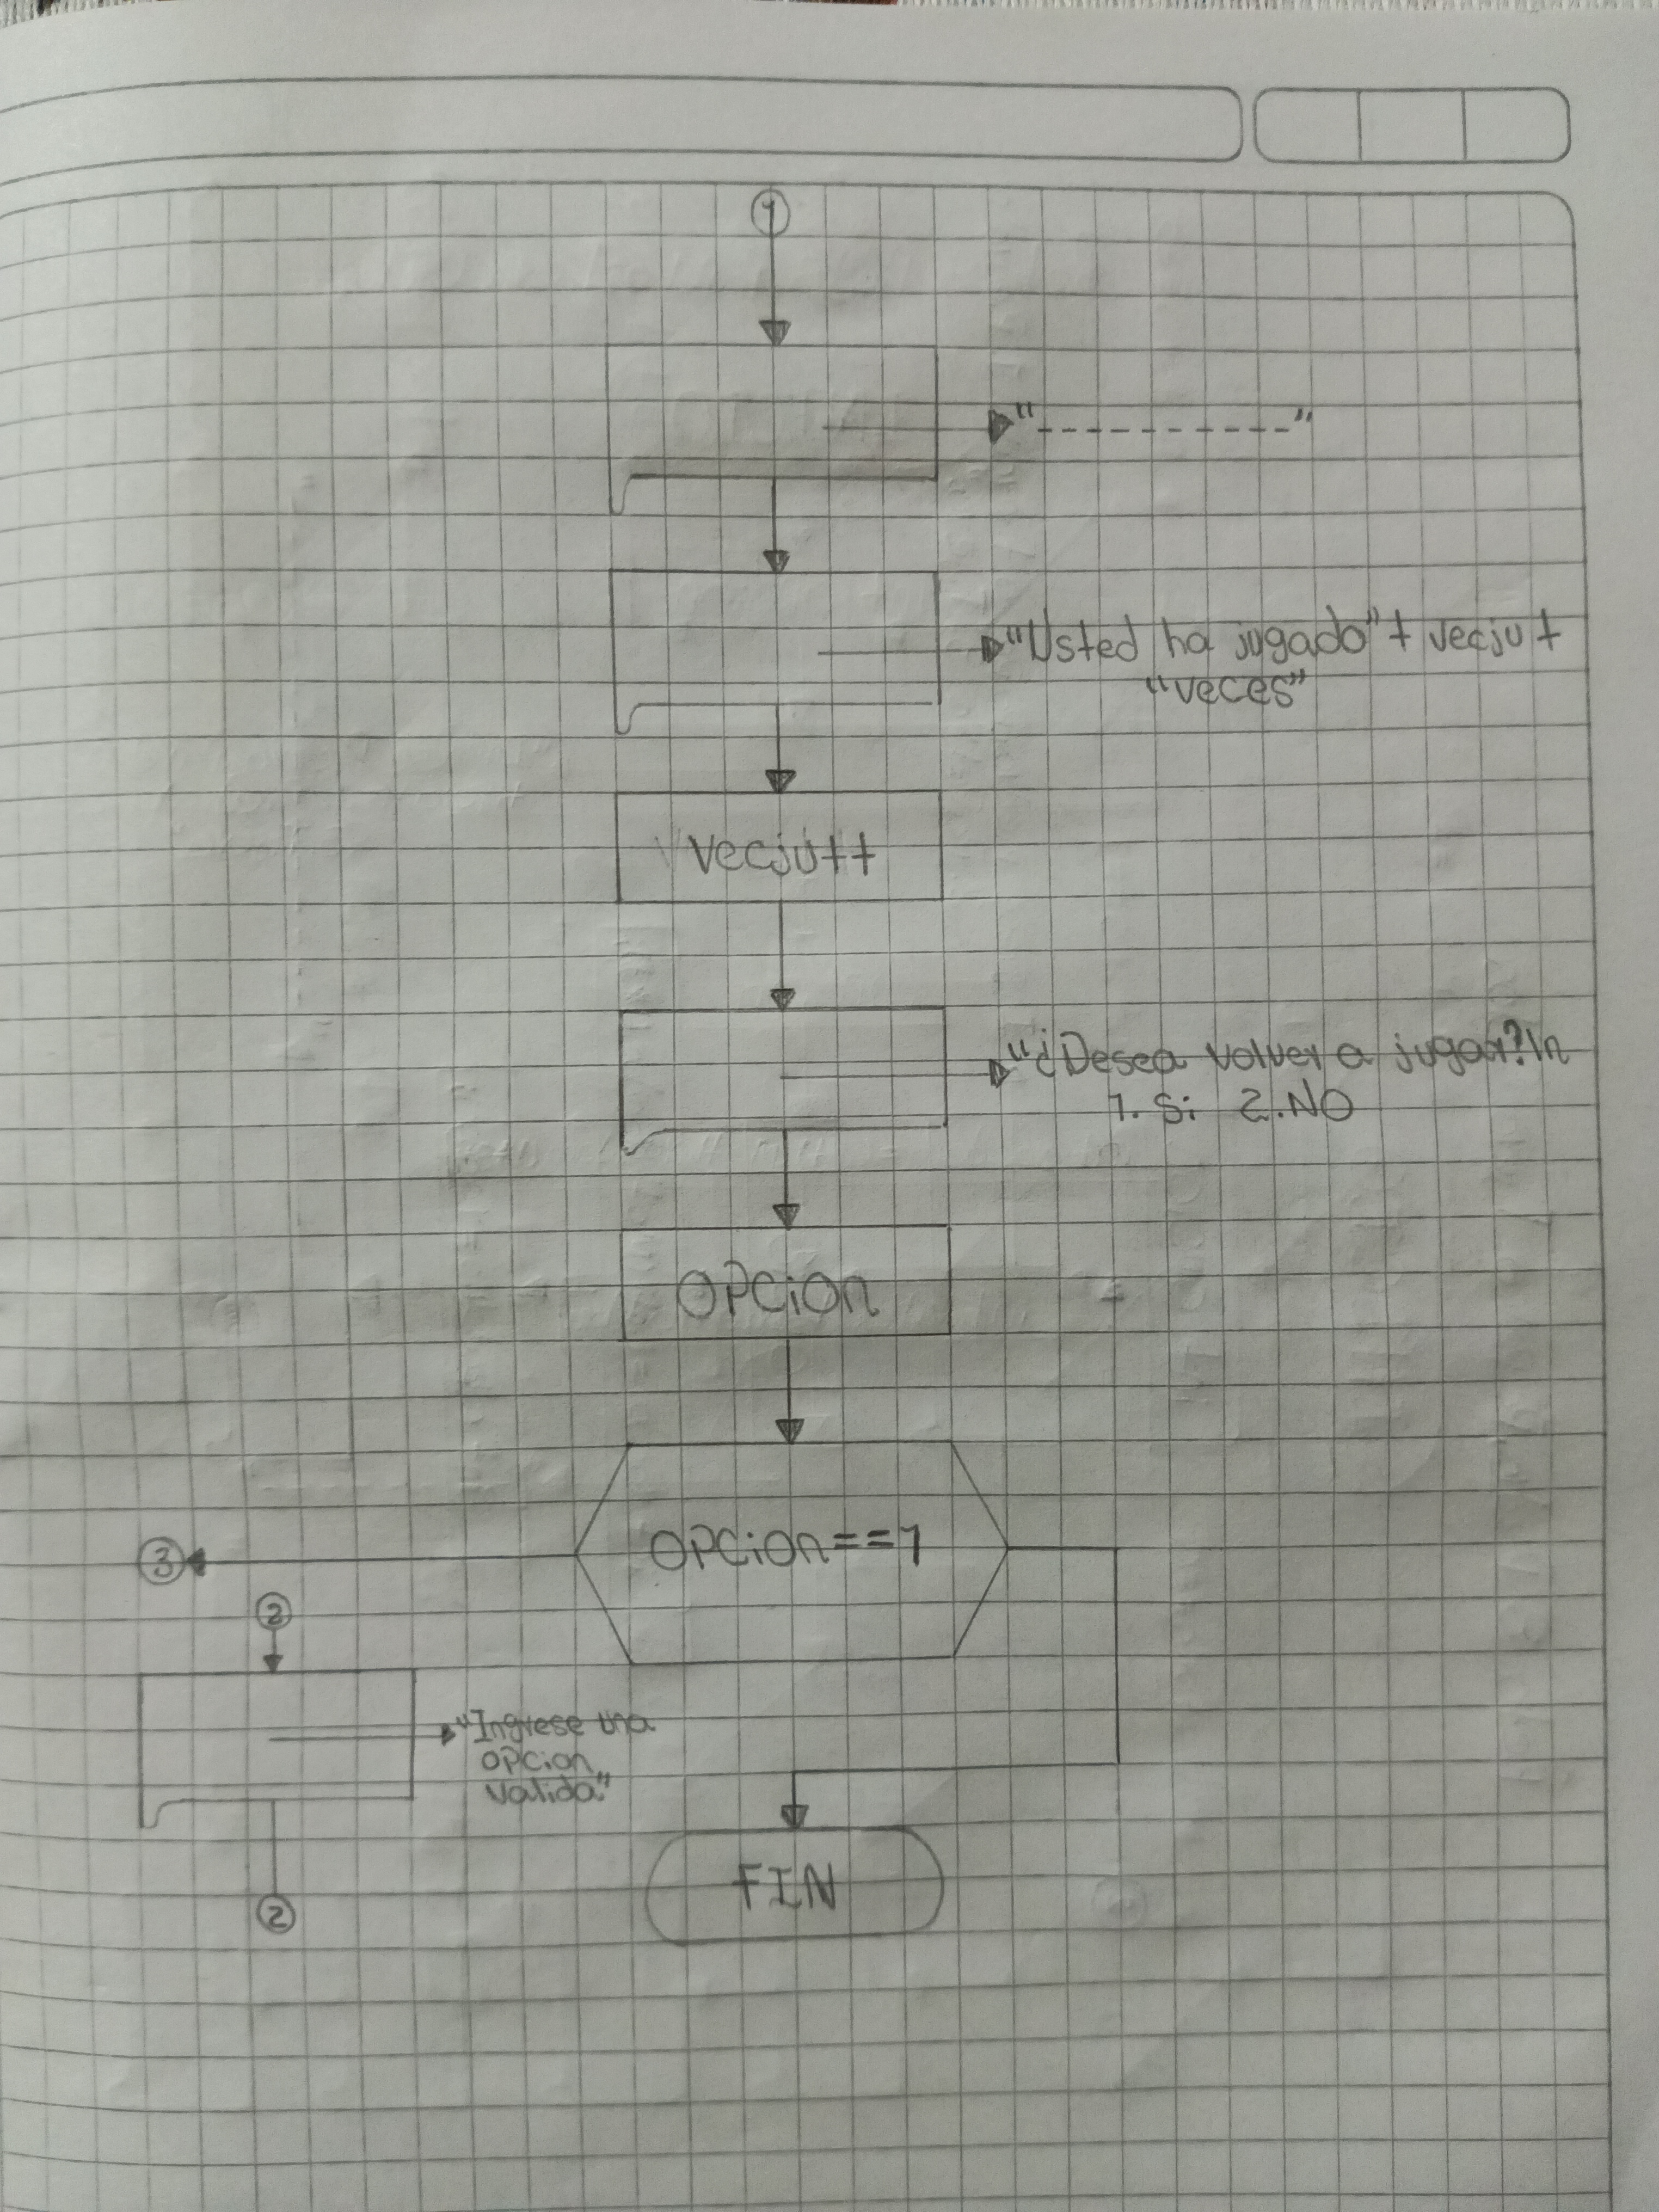 1
"-----------"
"Usted ha jugado" + vecju +
"veces"
Vecju++
"¿Desea volver a jugar?\n
1. Si 2. NO
OPCion
OPCion==1
3
2
"Ingrese una
opcion
valida"
2
FIN